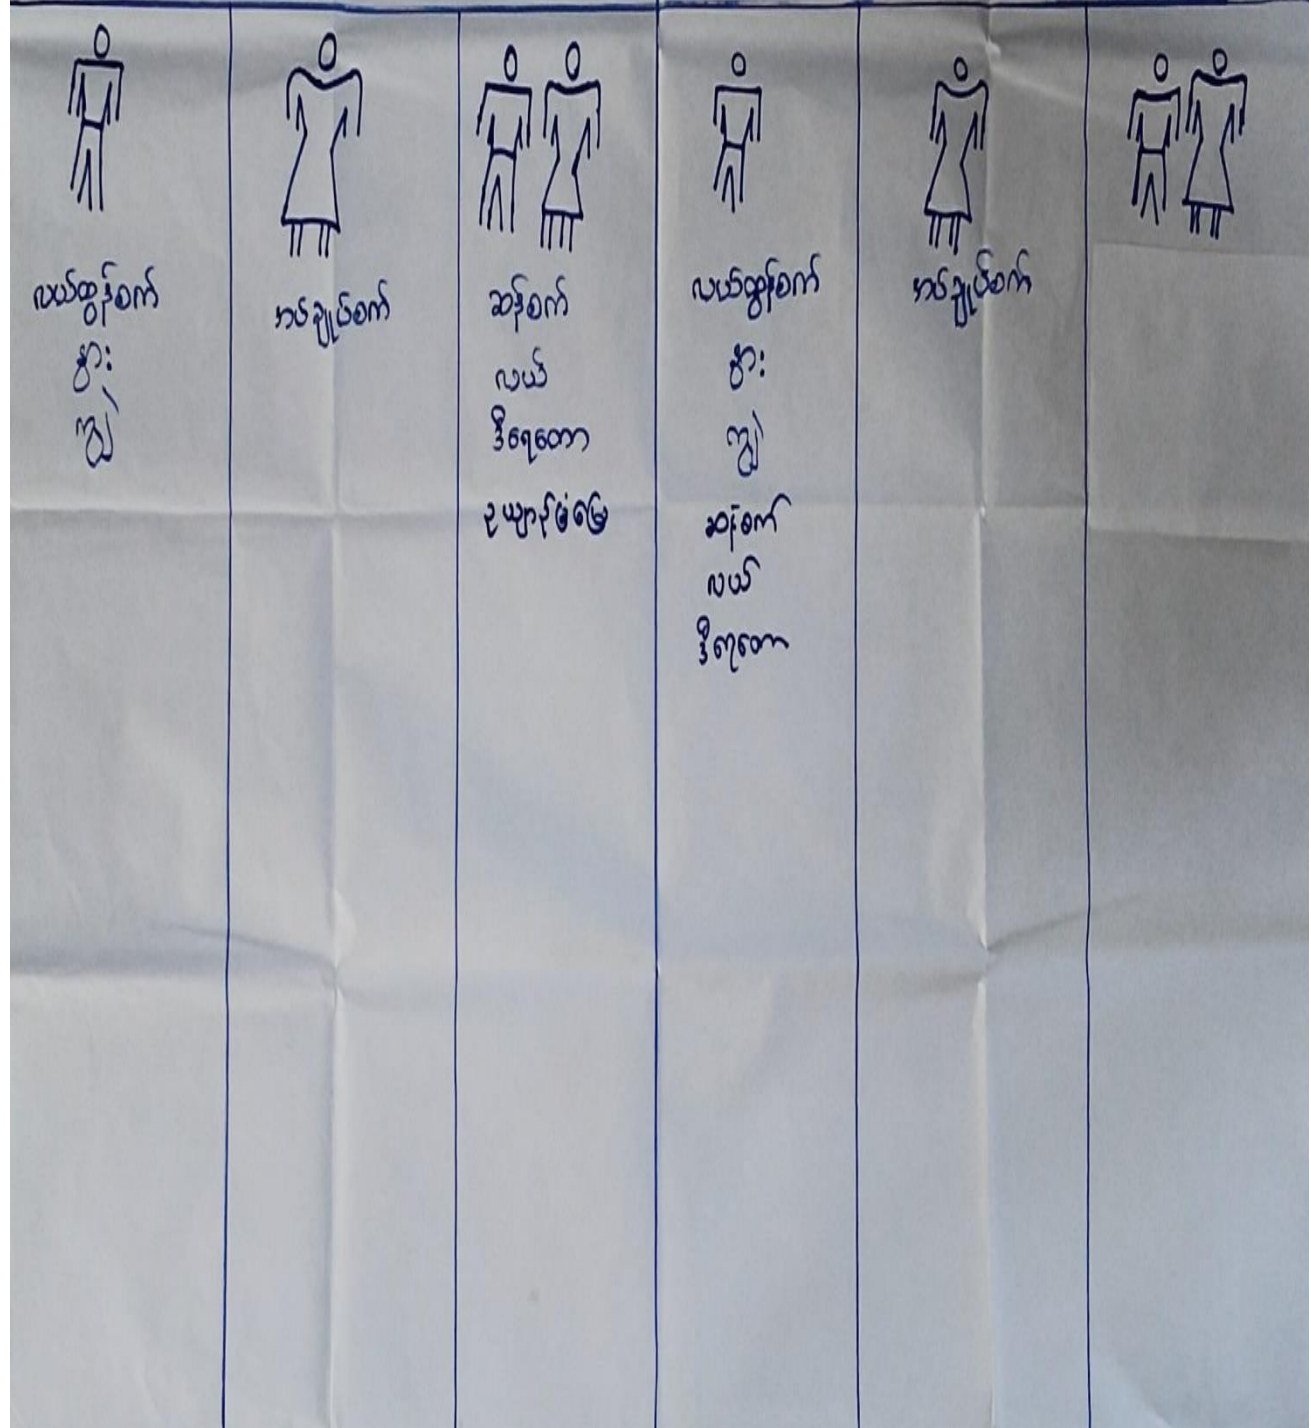 လယ်ထွန်စက်
နွား
ကျွဲ
အပ်ချုပ်စက်
ဆန်စက်
လယ်
ဒီရေတော
ဥယျာဉ်ခြံမြေ
လယ်ထွန်စက်
နွား
ကျွဲ
ဆန်စက်
လယ်
ဒီရေတော
အပ်ချုပ်စက်